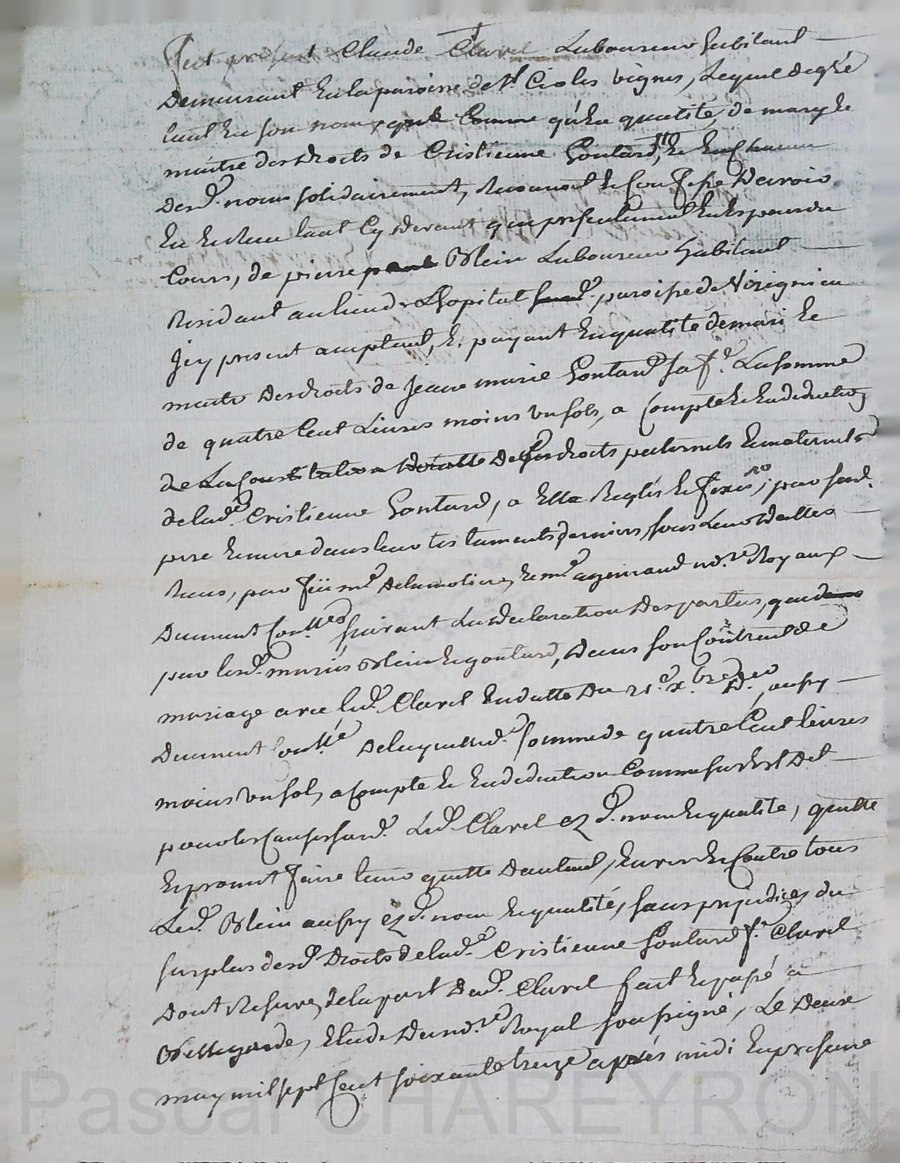 fut présent Claude Clavel Laboureur habitant
demeurant en la paroisse de St Cir les vignes, Lequel de gré
tant en son nom que comme qu'en qualité de mary et
maitre des droits de Cristienne Goutard, et
desd. noms solidairement,
de pierre Blein Laboureur habitant
Résidant au lieu de Lhopital paroisse de
Jcy present acceptant, et payant en qualité de mari et
maitre des droits de Jeane marie Goutard sa fe. La somme
de quatre Cent Livres moins un sols, a Compte et En deduction
de La Constitution des droits paternels et maternels
de lad. Cristienne Goutard, a Elle Reglés et fixés par sesd.
pere et mere dans leur testaments derniers, sous Leurs dattes
Recus, par feü me. Delamotte, et me. notres. Royaux
Dument Conllés suivant La declaration des parties,
par lesd. mariés Blein et goutard, dans son Contract de
mariage avec led. Clavel En datte du 21e xbre
Dument Conllé De laquelled. somme de quatre Cent livres
moins un sol, a Compte et En deduction Comme sus est Dit
pour les Causes susd. Led. Clavel ezd. nom et qualité, quitte
et promet faire tenir quitte d'autant, Envers et Contre tous
Led. Blein aussy ezd. nom et qualités, sans prejudice du
surplus desd. Droits de lad. Cristienne Goutard fe. Clavel
Dont Reserve, de la part dud. Clavel fait et passé a
Bellegarde, Etude du notre Royal soussigné, Le Deux
may mil sept Cent soixante treize après midi En presence
Pascal CHAREYRON